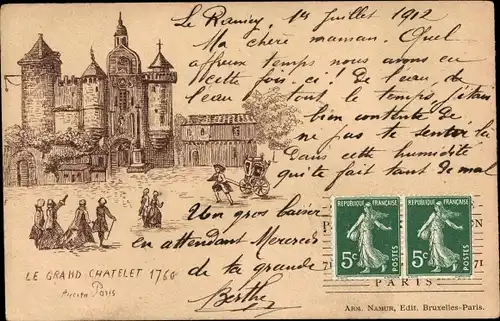 Le Raincy, 1er Juillet 1912
Ma chère maman. Quel
affreux temps nous avons eu
cette fois-ci! De l'eau, de
l'eau tout le temps, j'étais
bien contente de
ne pas te sentir là
Dans cette humidité
qui te fait tant de mal
Un gros baiser
en attendant Mercredi
de ta grande
Berthe
LE GRAND CHATELET 1760
Paris
REPUBLIQUE FRANÇAISE
5c
POSTES
REPUBLIQUE FRANÇAISE
5c
POSTES
PARIS
ARM. NAMUR, Edit. Bruxelles-Paris.